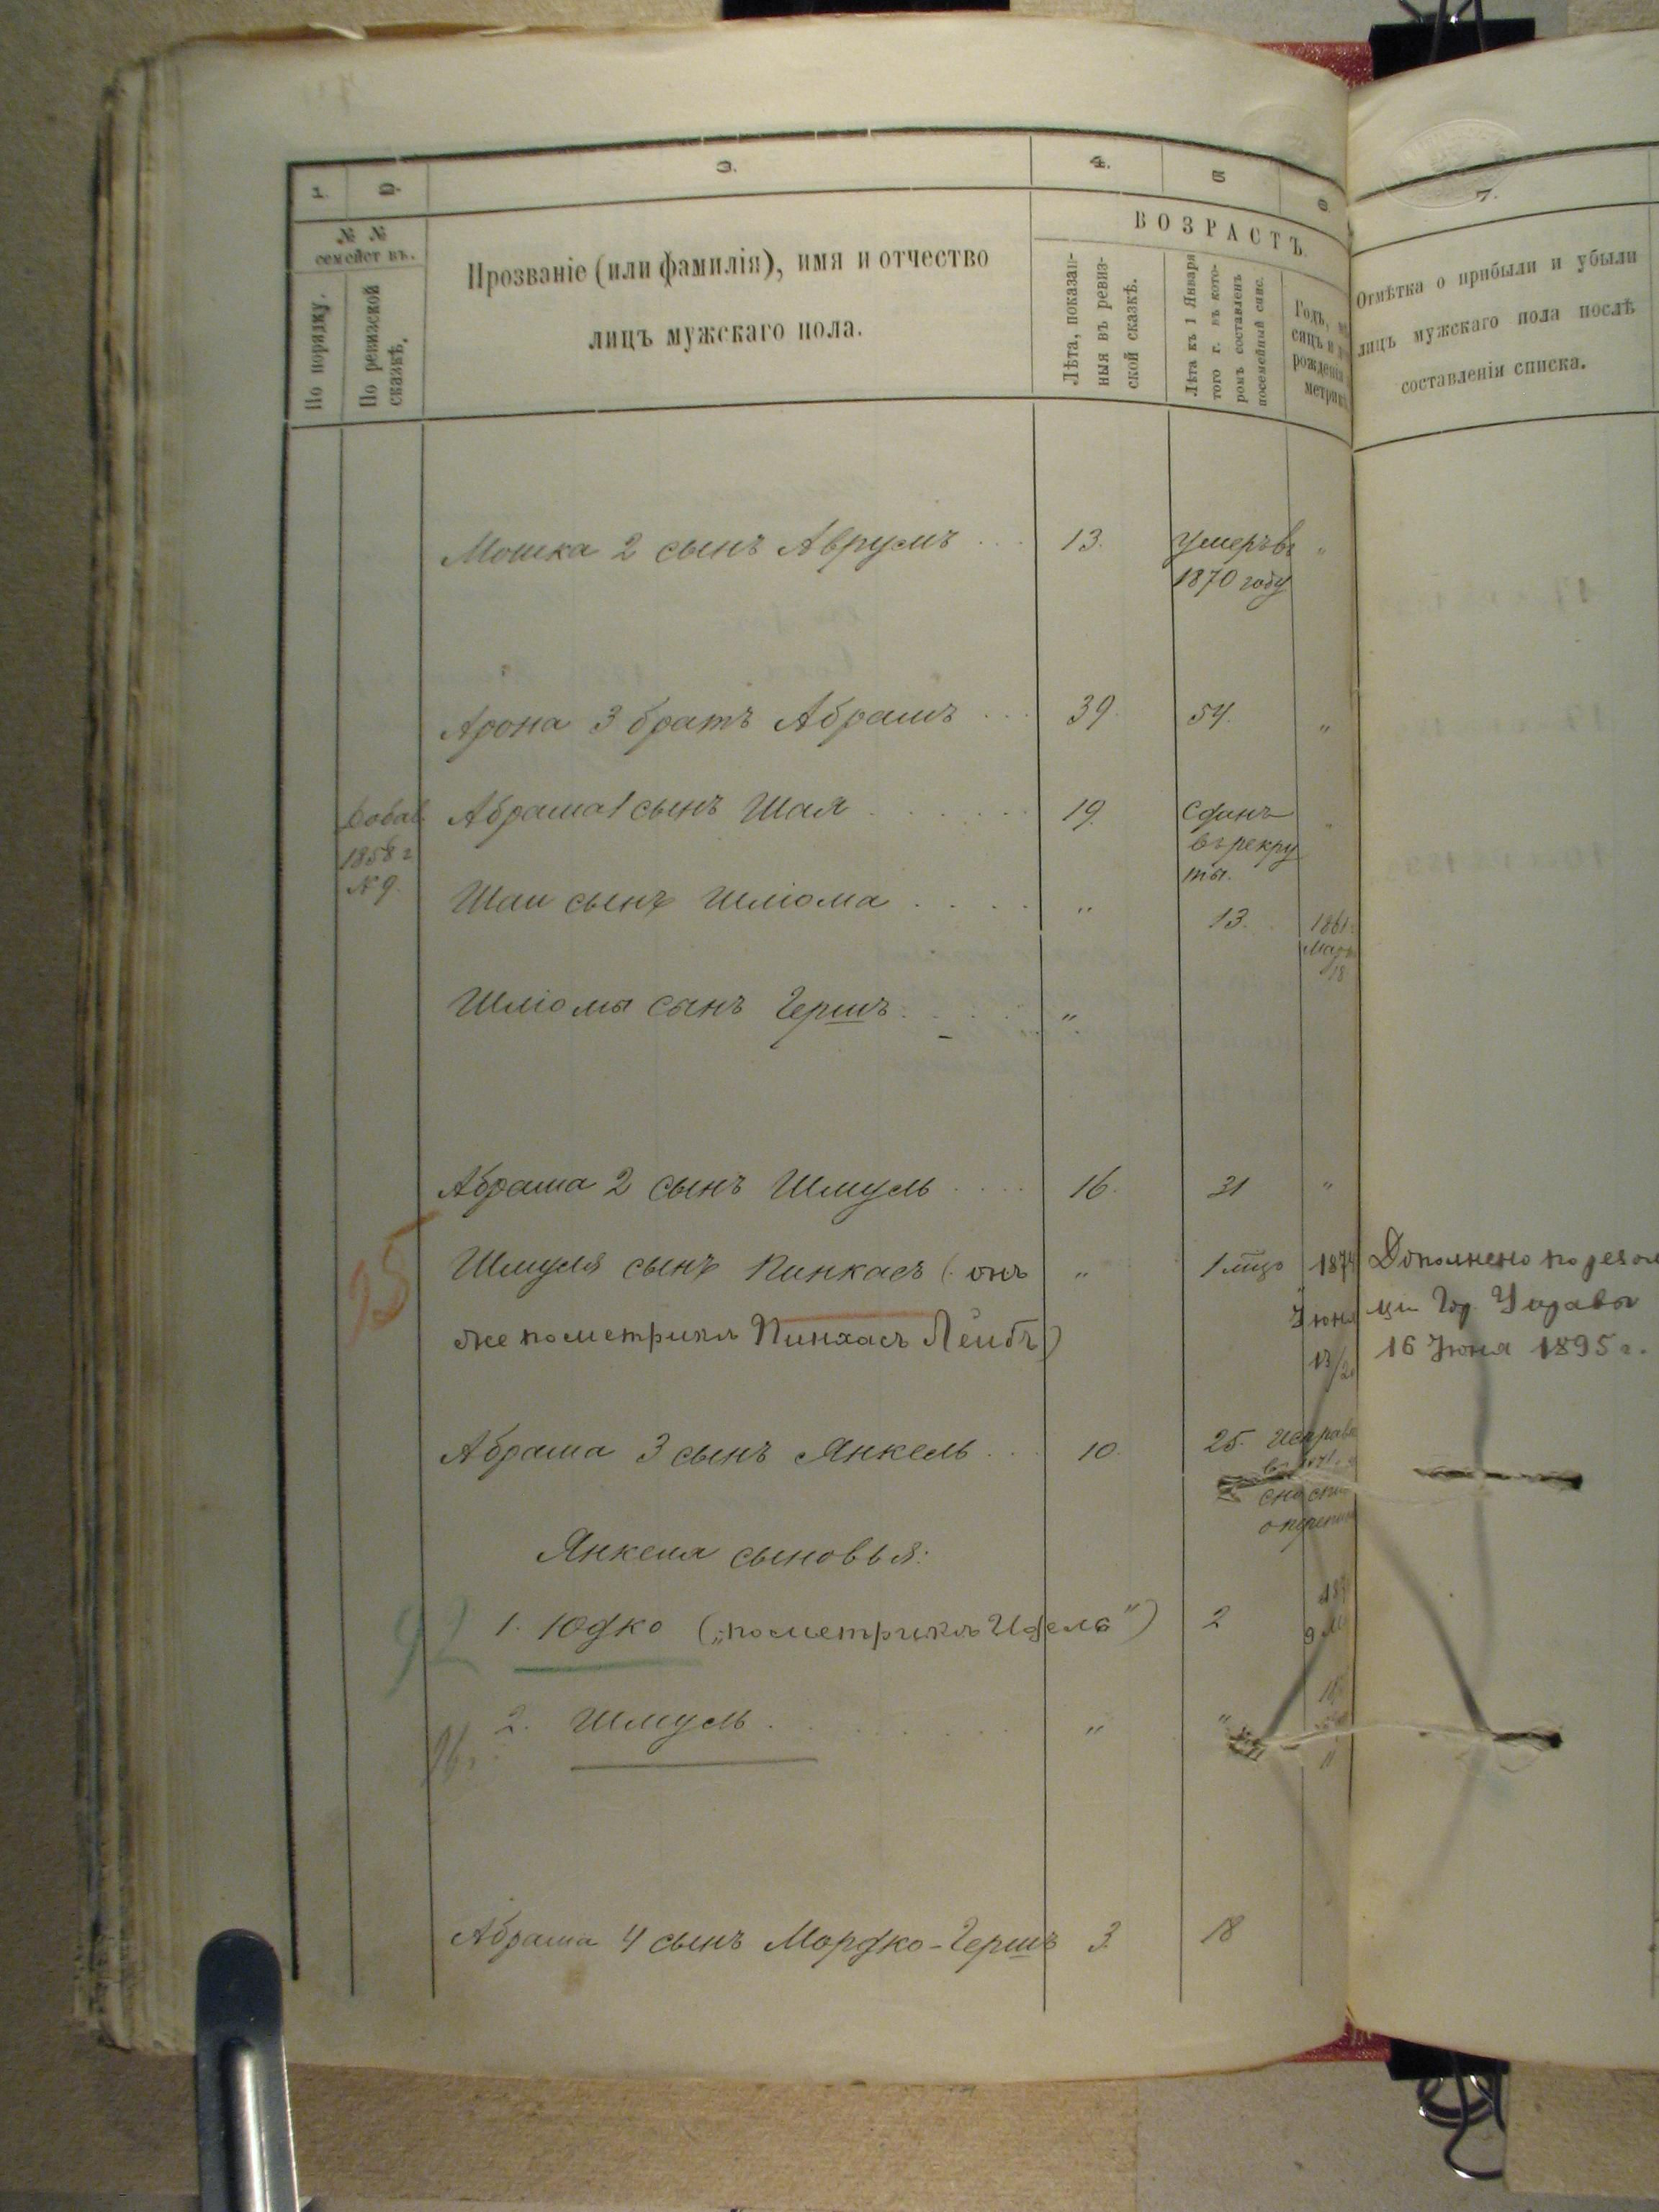 1. 2. 3. 4. 5 6 7.
№ №
семействъ.
По порядку.
По ревизской
сказкѣ.
Прозваніе (или фамилія), имя и отчество
лицъ мужскаго пола.
ВОЗРАСТЪ.
Лѣта, показан-
ныя въ ревиз-
ской сказкѣ.
Лѣта къ 1 Января
того г. въ кото-
ромъ составленъ
посемейный спис.
Годъ,
сяцъ и
рожденія
метрик
Отмѣтка о прибыли и убыли
лицъ мужскаго пола послѣ
составленія списка.
Мошка 2 сынъ Аврумъ ... 13. умеръ въ "
1870 году
Арона 3 братъ Абрамъ ... 39. 54. "
Добав.
1858 г
№ 9.
Абрама 1 сынъ Шая ...... 19. Сданъ "
въ рекру
ты.
Шаи сынъ Шліома ..... " 13. 1861 г
Марта
18
Шліомы сынъ Гершъ ..... "
Абрама 2 сынъ Шмуль .... 16. 31 "
95
Шмуля сынъ Пинкасъ (: онъ " 1 мѣць 1874
же по метрикѣ Пинхасъ Лейбъ) Іюня
13/20
Дополнено по резол
ціи Гор. Управы
16 Іюня 1895 г.
Абрама 3 сынъ Янкель ... 10. 25. Исправ
Янкеля сыновья:
92
1. Юдко („по метрикѣ Идель") 2
96.
2. Шмуль ......... " "
Абрама 4 сынъ Мордко-Гершъ 3. 18